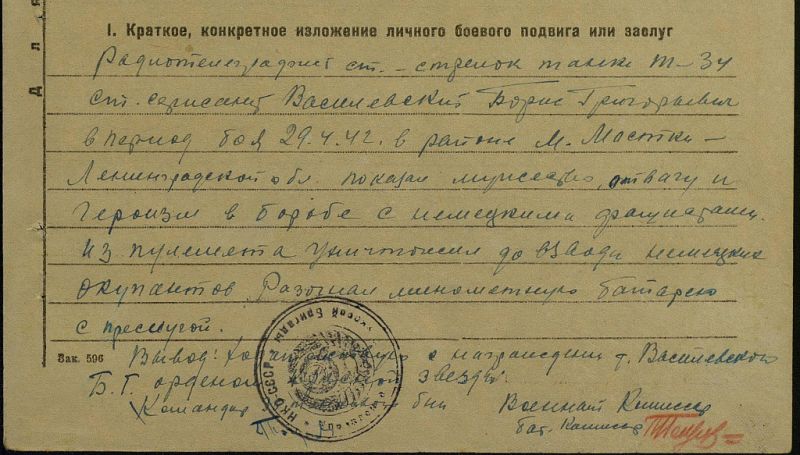 Для
I. Краткое, конкретное изложение личного боевого подвига или заслуг
Радиотелеграфист ст. – стрелок танка Т-34
ст. сержант Василевский Борис Григорьевич
в период боя 29.4.42 г. в районе М. Мостки –
Ленинградской обл. показал мужество, отвагу и
героизм в борьбе с немецкими фашистами.
Из пулемета уничтожил до взвода немецких
окупантов. Разогнал минометную батарею
с прислугой.
Зак. 596
Вывод: о награждении т. Василевского
Б. Г. орденом звезды
Командир б-на Военный Комиссар
бат. Комиссар
НКО СССР бригады